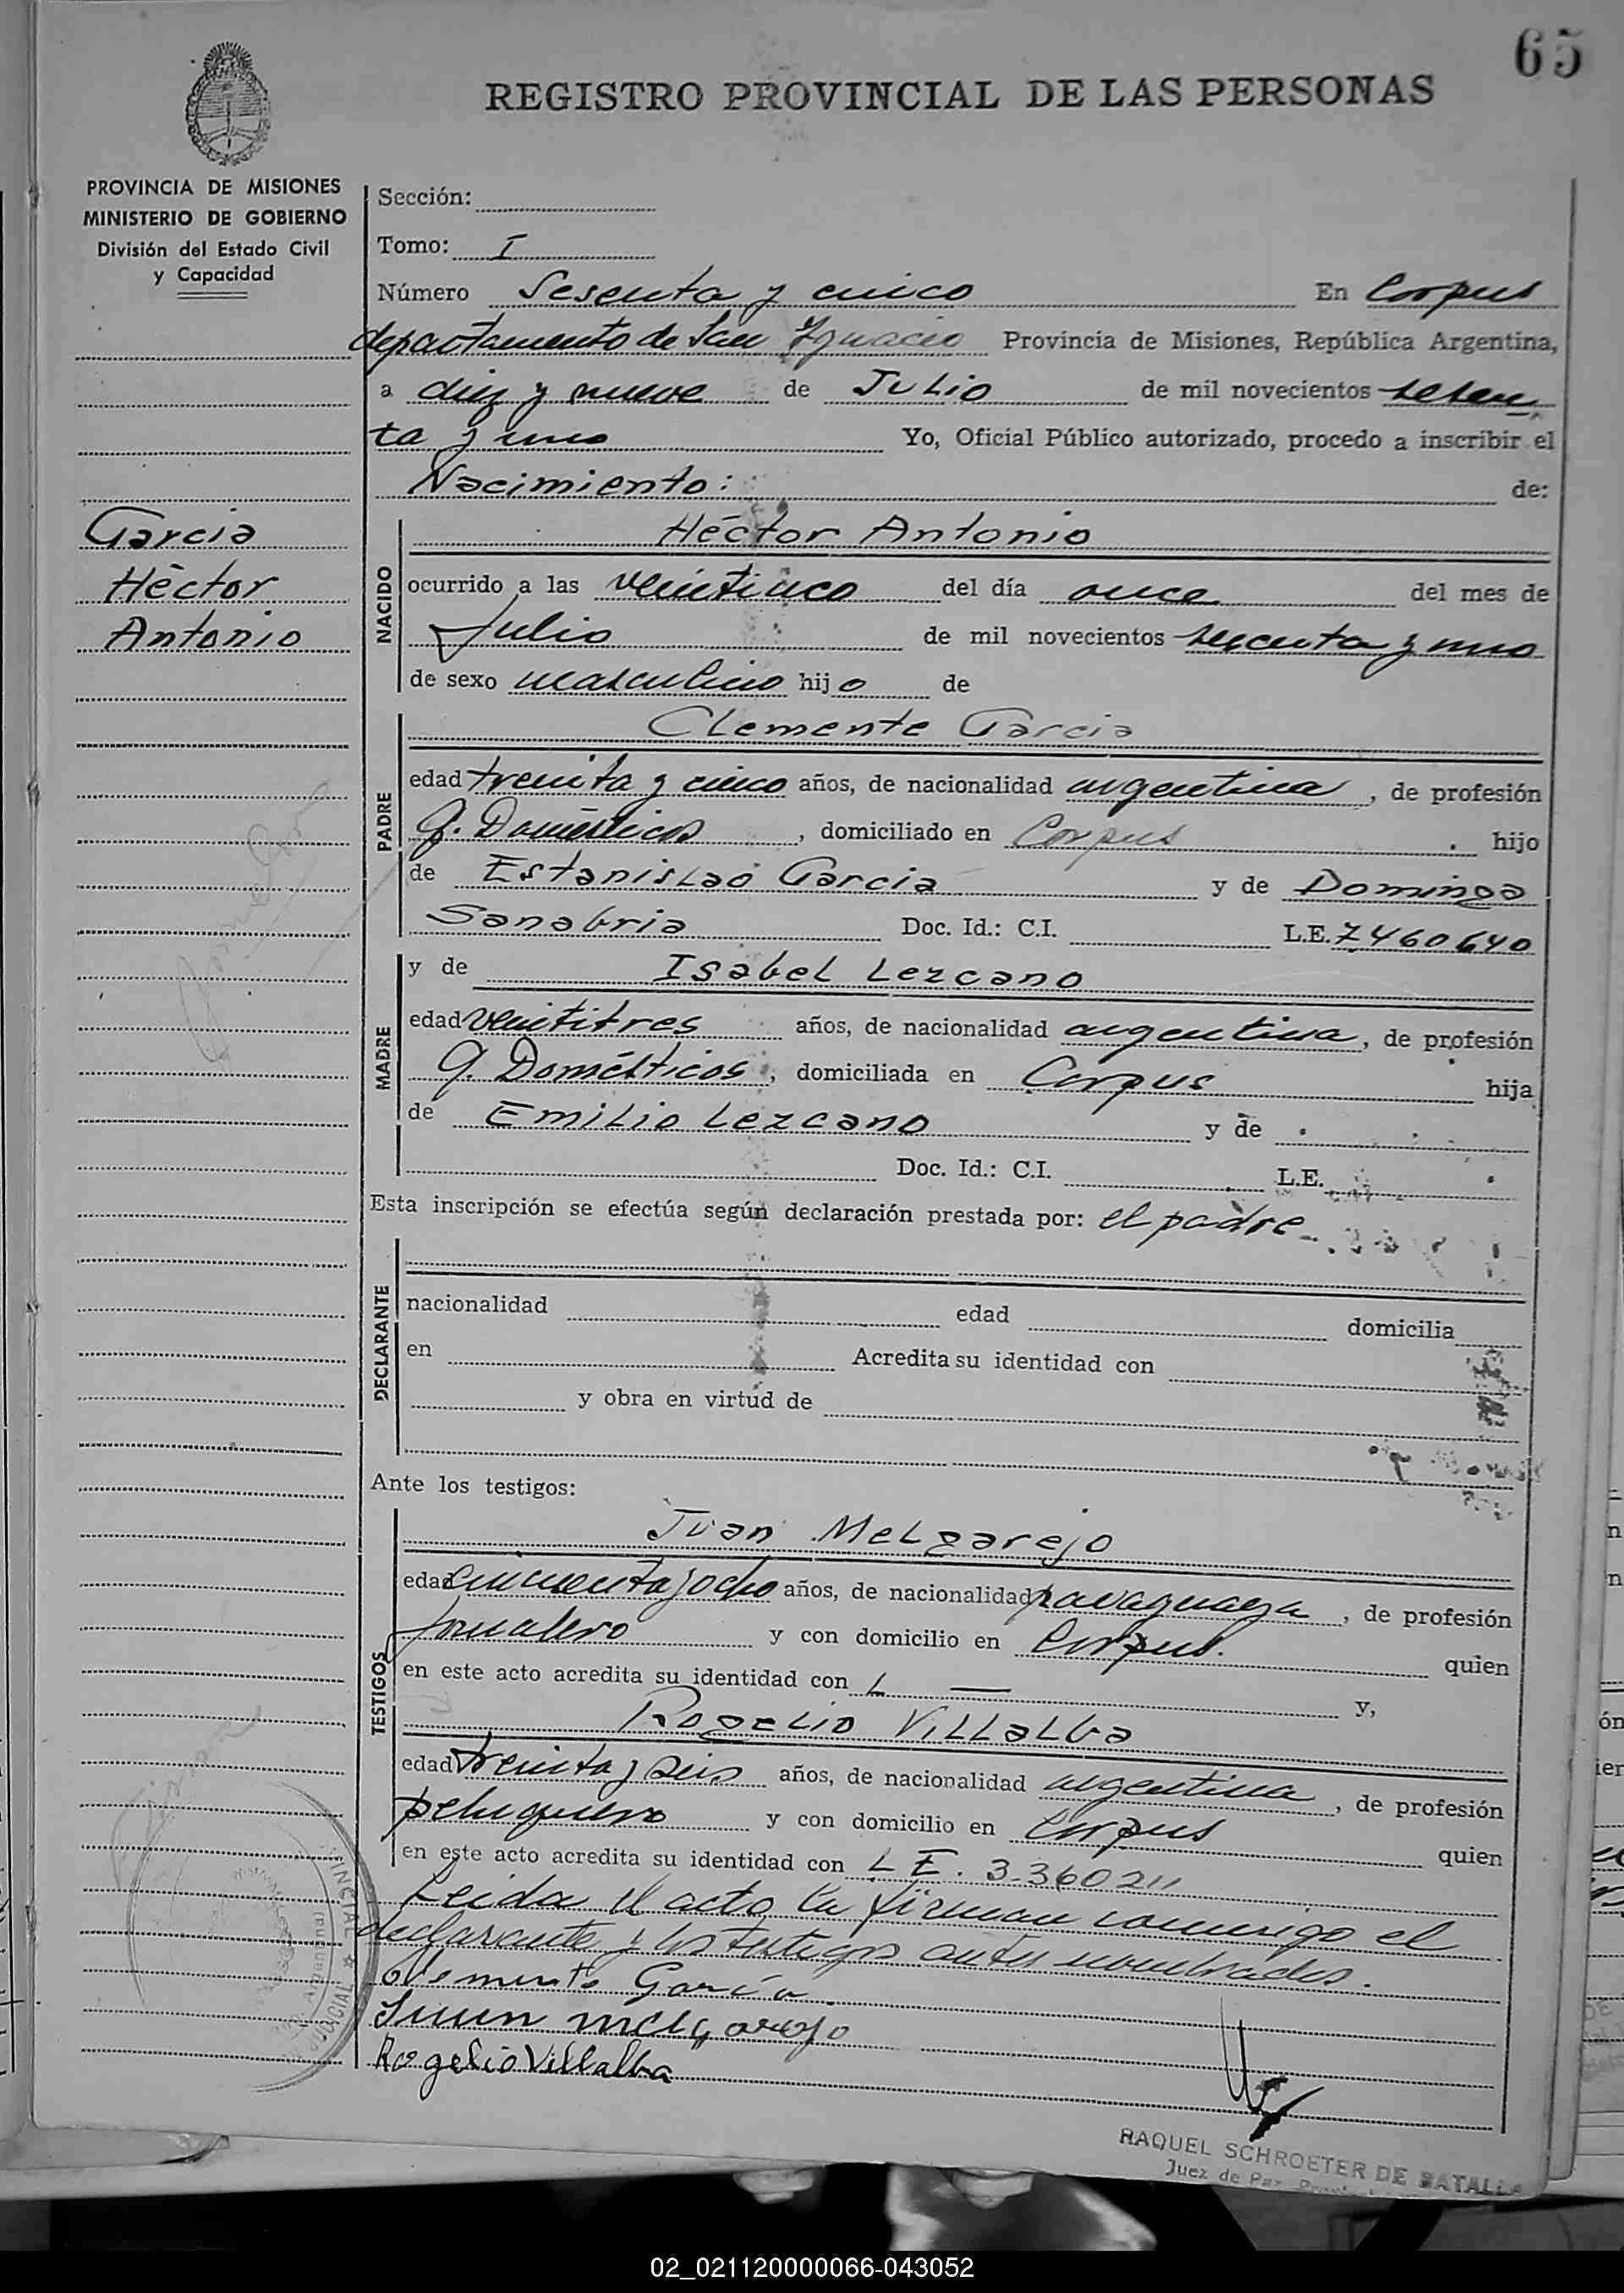 65
REGISTRO PROVINCIAL DE LAS PERSONAS
PROVINCIA DE MISIONES
MINISTERIO DE GOBIERNO
División del Estado Civil
y Capacidad
Sección:
Tomo: I
Número Sesenta y cinco En Corpus
departamento de San Ignacio Provincia de Misiones, República Argentina,
a diez y nueve de Julio de mil novecientos
ta y uno Yo, Oficial Público autorizado, procedo a inscribir el
Nacimiento: de:
Garcia
Héctor
Antonio
NACIDO
Héctor Antonio
ocurrido a las del día once del mes de
Julio de mil novecientos y uno
de sexo masculino hijo de
PADRE
Clemente Garcia
edad treinta y cinco años, de nacionalidad argentina, de profesión
Q. Domésticos, domiciliado en Corpus hijo
de Estanislao Garcia y de Dominga
Sanabria Doc. Id.: C.I. L.E. 7460640
MADRE
y de Isabel Lezcano
edad veintitres años, de nacionalidad argentina, de profesión
Q. Domésticos, domiciliada en Corpus hija
de Emilio Lezcano y de
Doc. Id.: C.I. L.E.
Esta inscripción se efectúa según declaración prestada por: el padre
DECLARANTE
nacionalidad edad domicilia
en Acredita su identidad con
y obra en virtud de
Ante los testigos:
TESTIGOS
Juan Melgarejo
edad cincuenta y ocho años, de nacionalidad paraguaya, de profesión
jornalero y con domicilio en Corpus. quien
en este acto acredita su identidad con L — y,
Rogelio Villalba
edad treinta y seis años, de nacionalidad argentina, de profesión
peluquero y con domicilio en Corpus quien
en este acto acredita su identidad con L E. 3.360211
Leida el acto la firman conmigo el
declarante y los testigos antes nombrados.
Clemente García
Juan Melgarejo
Rogelio Villalba
RAQUEL SCHROETER DE BATALLA
Juez de Paz
02_021120000066-043052